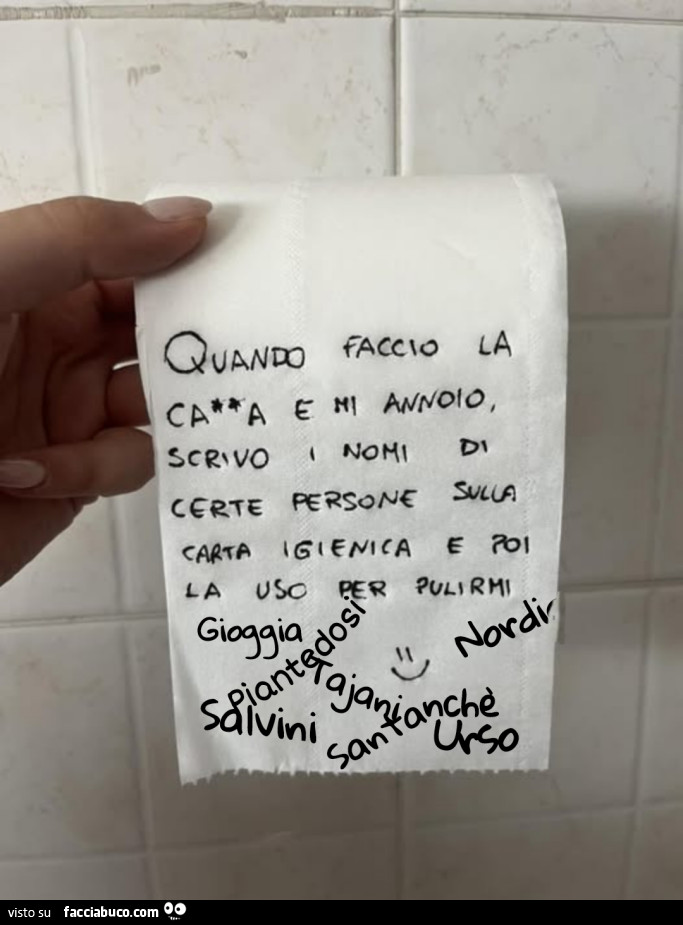 QUANDO FACCIO LA
CA**A E MI ANNOIO,
SCRIVO I NOMI DI
CERTE PERSONE SULLA
CARTA IGIENICA E POI
LA USO PER PULIRMI
Gioggia
Piantedosi
Nordio
Tajani
Salvini
Santanchè
Urso
visto su facciabuco.com